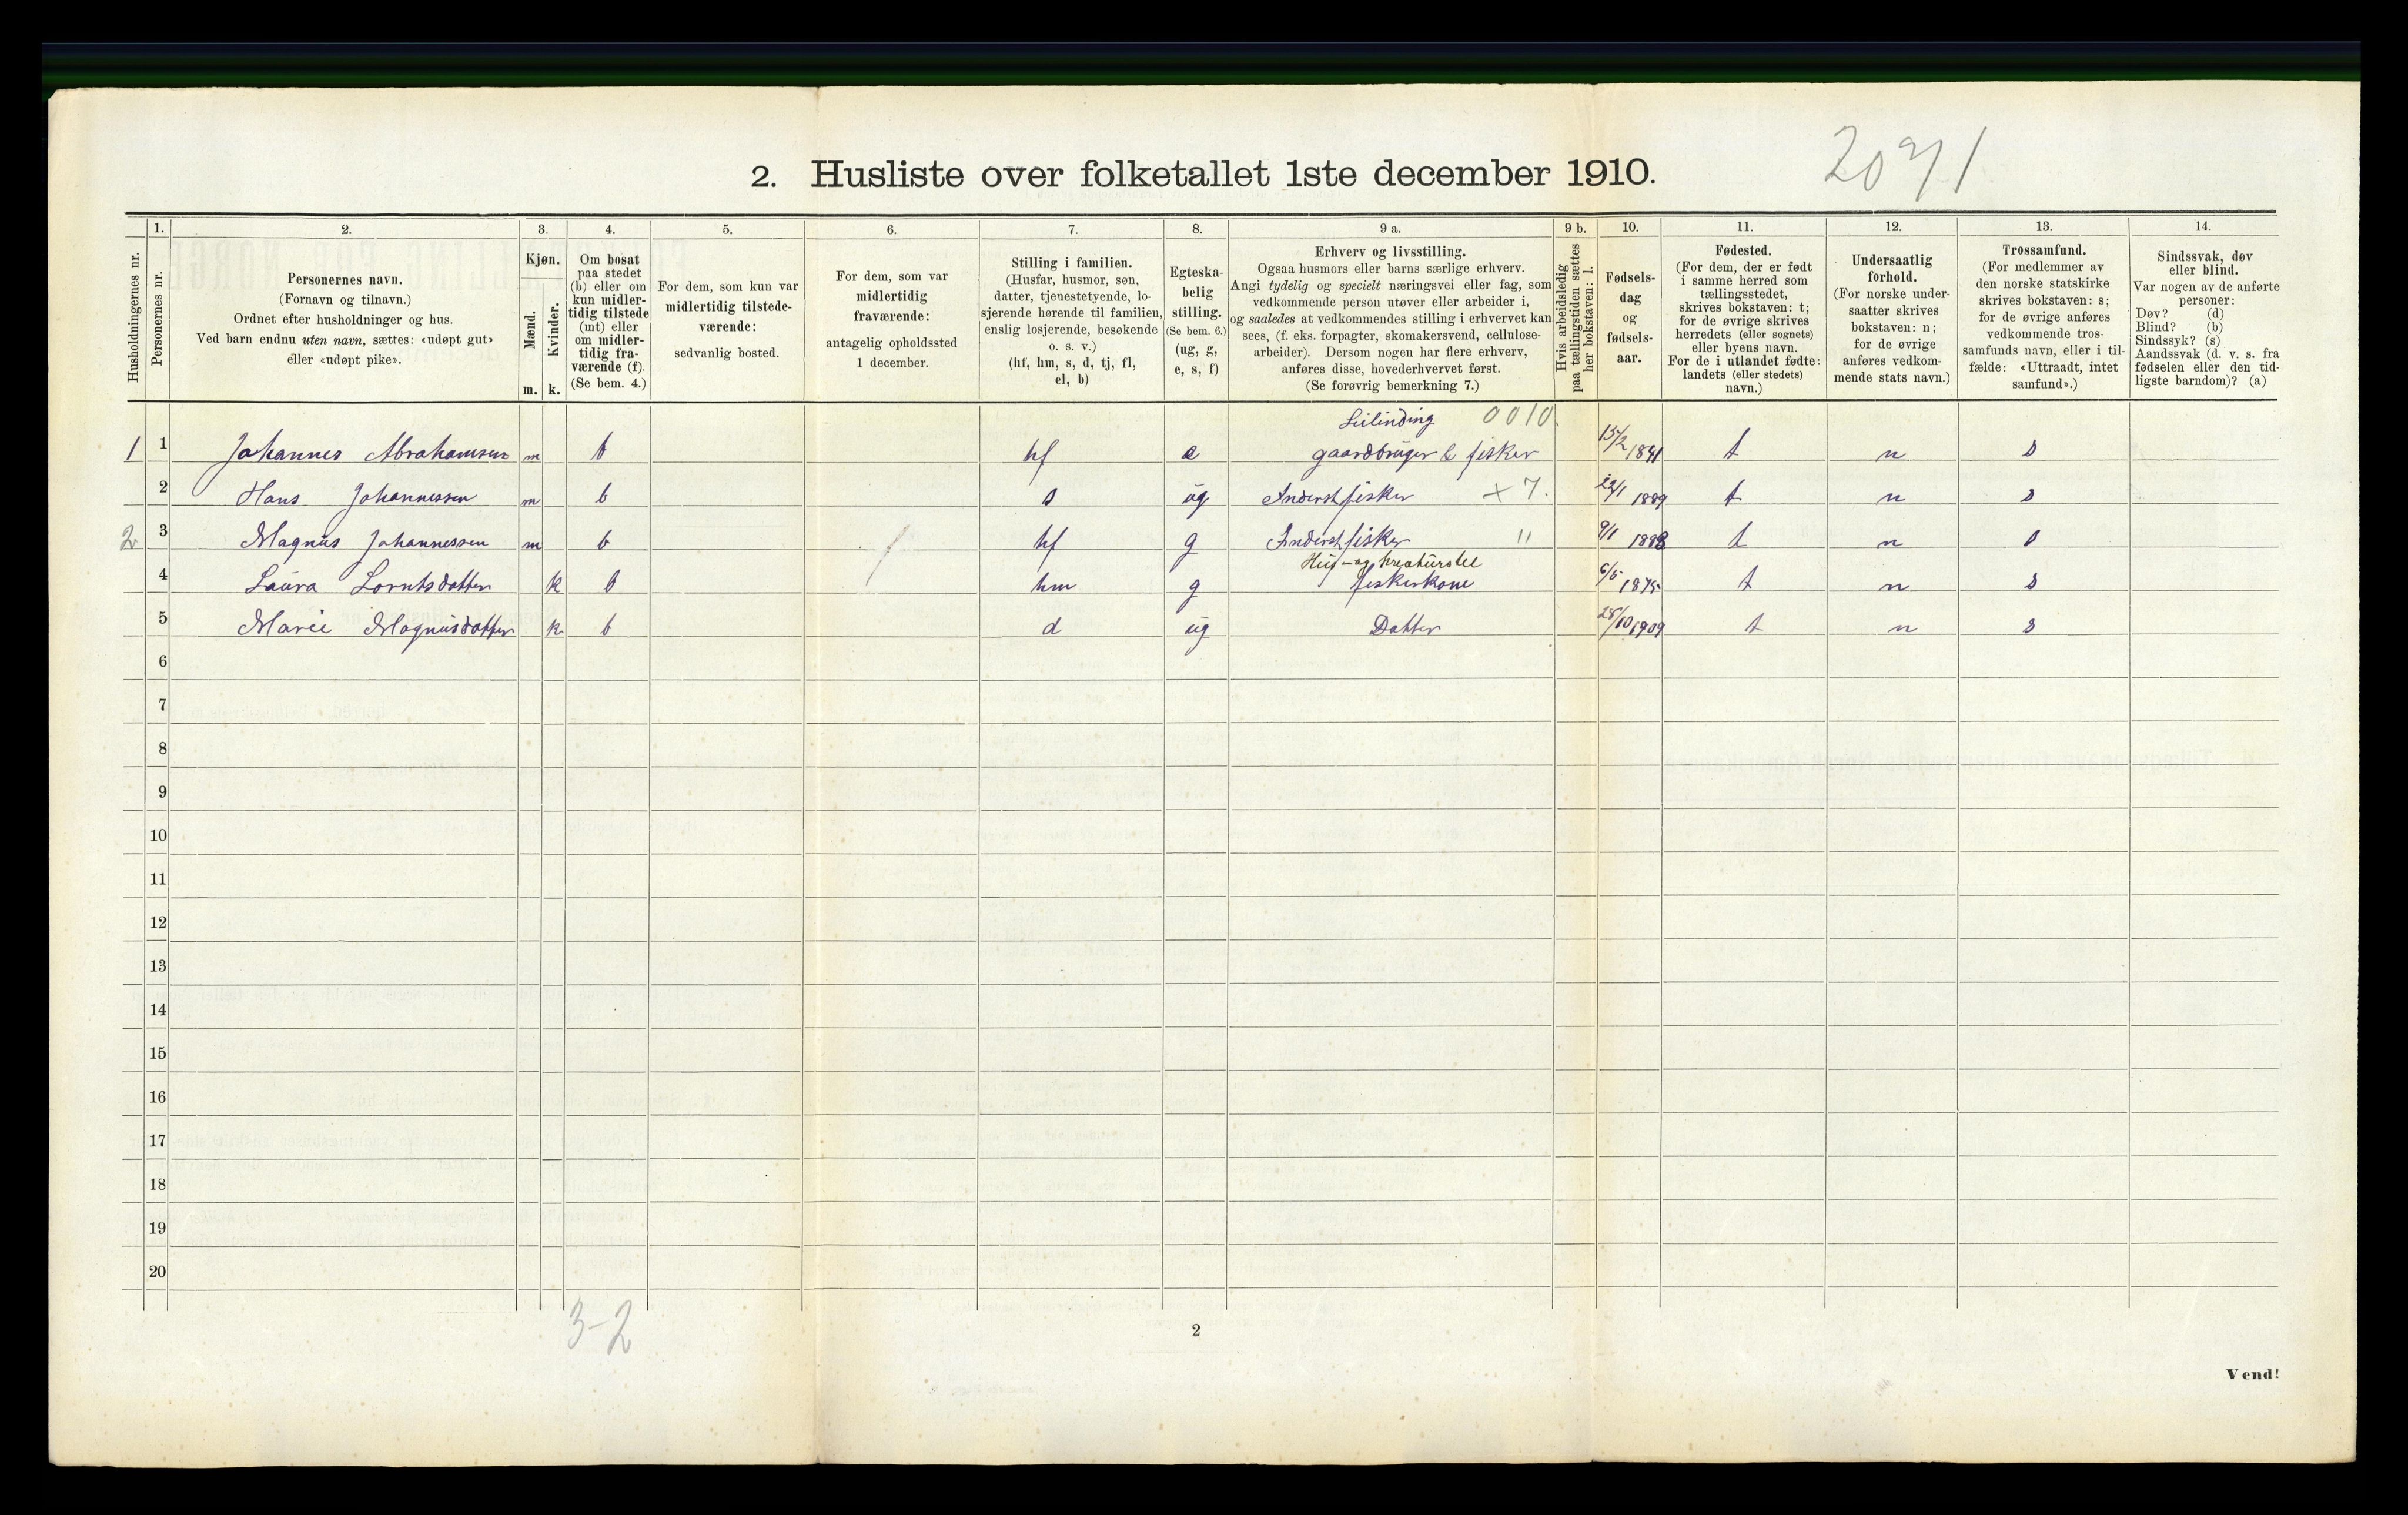 2071
2. Husliste over folketallet 1ste december 1910.
Husholdningernes nr.
1.
Personernes nr.
2.
Personernes navn.
(Fornavn og tilnavn.)
Ordnet efter husholdninger og hus.
Ved barn endnu uten navn, sættes: «udøpt gut»
eller «udøpt pike».
3.
Kjøn.
Mænd.
Kvinder.
m. k.
4.
Om bosat
paa stedet
(b) eller om
kun midler-
tidig tilstede
(mt) eller
om midler-
tidig fra-
værende (f).
(Se bem. 4.)
5.
For dem, som kun var
midlertidig tilstede-
værende:
sedvanlig bosted.
6.
For dem, som var
midlertidig
fraværende:
antagelig opholdssted
1 december.
7.
Stilling i familien.
(Husfar, husmor, søn,
datter, tjenestetyende, lo-
sjerende hørende til familien,
enslig losjerende, besøkende
o. s. v.)
(hf, hm, s, d, tj, fl,
el, b)
8.
Egteska-
belig
stilling.
(Se bem. 6.)
(ug, g,
e, s, f)
9 a.
Erhverv og livsstilling.
Ogsaa husmors eller barns særlige erhverv.
Angi tydelig og specielt næringsvei eller fag, som
vedkommende person utøver eller arbeider i,
og saaledes at vedkommendes stilling i erhvervet kan
sees, (f. eks. forpagter, skomakersvend, cellulose-
arbeider). Dersom nogen har flere erhverv,
anføres disse, hovederhvervet først.
(Se forøvrig bemerkning 7.)
9 b.
Hvis arbeidsledig
paa tællingstiden sættes
her bokstaven: l.
10.
Fødsels-
dag
og
fødsels-
aar.
11.
Fødested.
(For dem, der er født
i samme herred som
tællingsstedet,
skrives bokstaven: t;
for de øvrige skrives
herredets (eller sognets)
eller byens navn.
For de i utlandet fødte:
landets (eller stedets)
navn.)
12.
Undersaatlig
forhold.
(For norske under-
saatter skrives
bokstaven: n;
for de øvrige
anføres vedkom-
mende stats navn.)
13.
Trossamfund.
(For medlemmer av
den norske statskirke
skrives bokstaven: s;
for de øvrige anføres
vedkommende tros-
samfunds navn, eller i til-
fælde: «Uttraadt, intet
samfund».)
14.
Sindssvak, døv
eller blind.
Var nogen av de anførte
personer:
Døv? (d)
Blind? (b)
Sindssyk? (s)
Aandssvak (d. v. s. fra
fødselen eller den tid-
ligste barndom)? (a)
Leilinding 0010
1 1 Johannes Abrahamsen m b hf e gaardbruger & fisker 15/2 1841 t n s
2 Hans Johannessen m b s ug fisker x 7. 1889 t n s
2 3 Magnus Johannessen m b hf g fisker " 9/1 t n s
Hus- og kreaturstel
4 Laura Lorntsdatter k b hm g fiskerkone 6/5 1875 t n s
5 Marie Magnusdatter k b d ug Datter 28/10 1909 t n s
6
7
8
9
10
11
12
13
14
15
16
17
18
19
20
3-2
2
Vend!